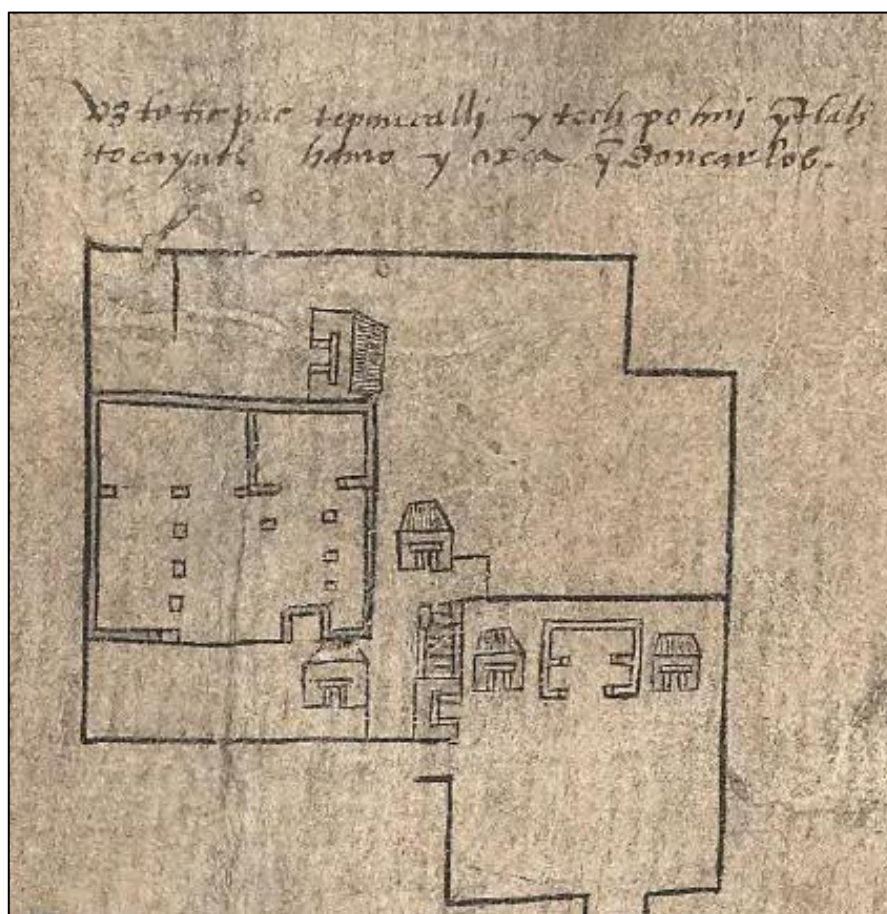 oztoticpac tepancalli ytech pohui ȳ tlah
tocayutl hamo y axca ȳ don carlos.